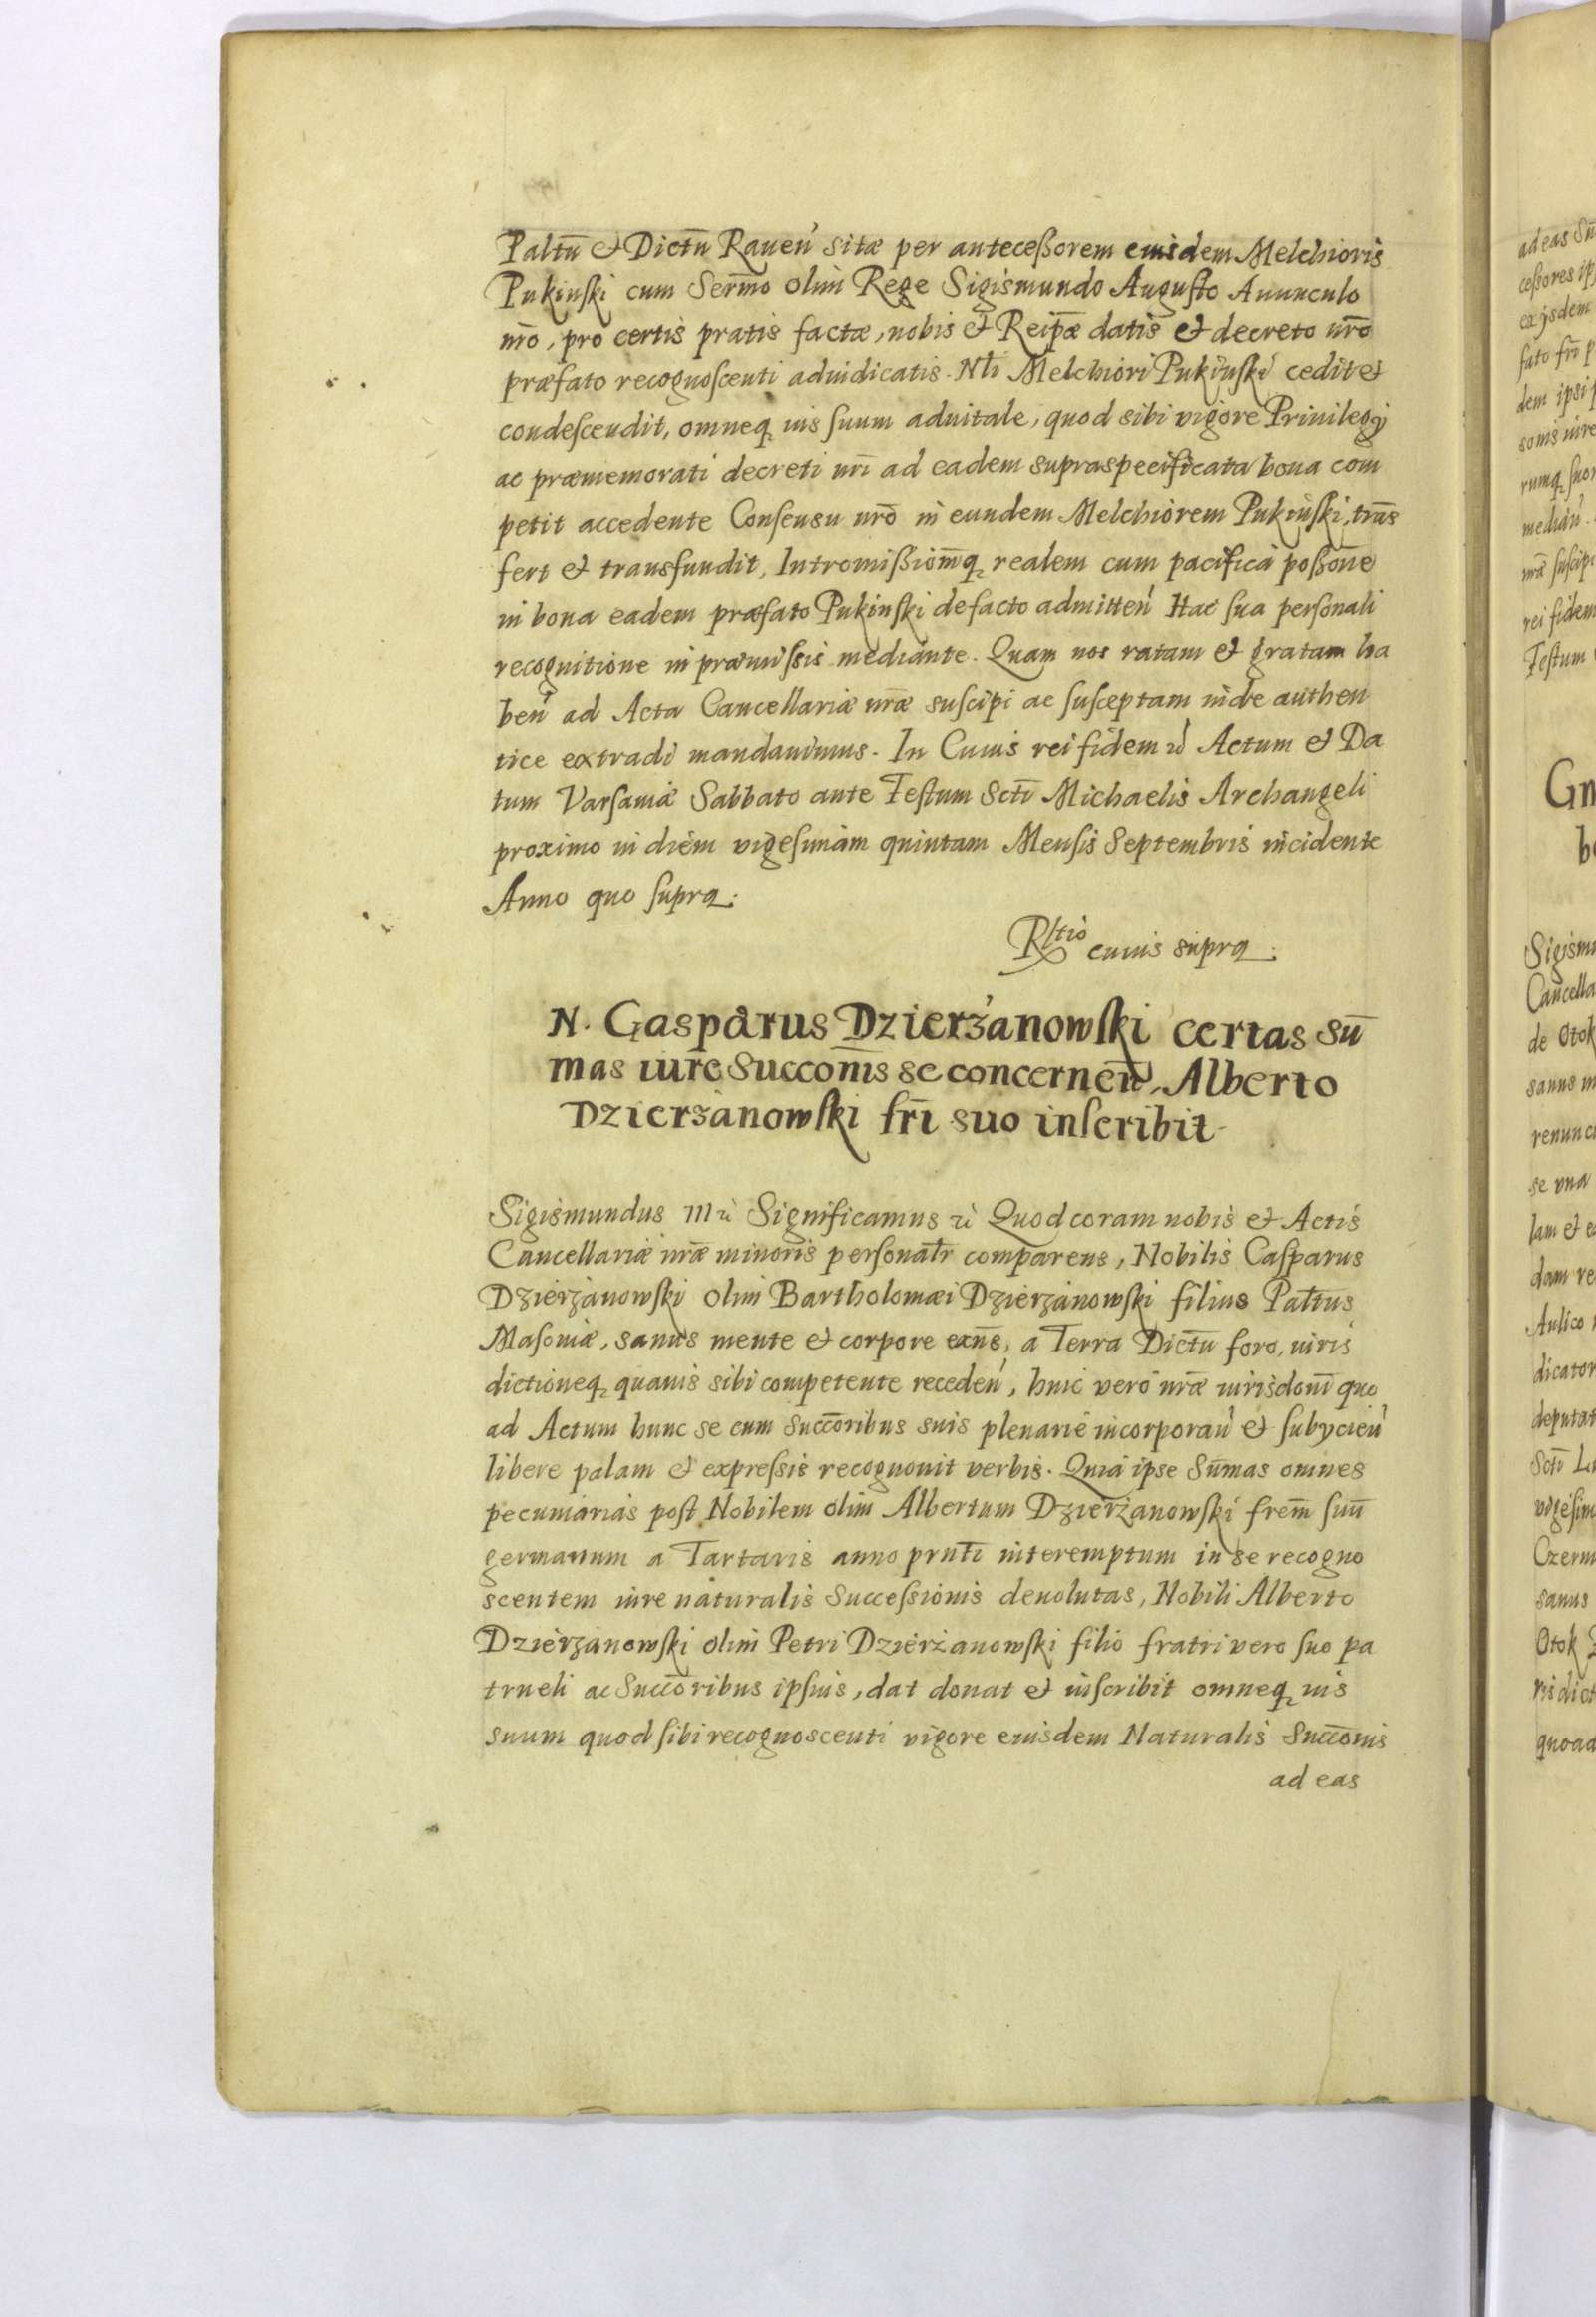 Paltū & Dictū Rauen̛ sitæ per anteceßorem eiusdem Melchioris
Pukinſki cum Serm̄o olim Rege Sigismundo Auguſto Auunculo
nr̄o, pro certis pratis factæ, nobis & Reip̄æ datis & decreto nr̄o
præfato recognoſcenti adiudicatis. Nli Melchiori Pukinſki cedit &
condeſcendit, omneq, ius ſuum aduitale, quod sibi vigore Priuilegÿ
ac præmemorati decreti nr̄i ad eadem supraspecificata bona com
petit accedente Conſensu nr̄o in eundem Melchiorem Pukinſki, trās
fert & transfundit, Intromißiom̄q, realem cum pacifica poßon̄e
in bona eadem præfato Pukinſki defacto admitten̛ Hac ſua perſonali
recognitione in præmiſsis mediante. Quam nos ratam & gratam ha
ben̛ ad Acta Cancellariæ nr̄æ suſcipi ac ſuſceptam inde authen
tice extradi mandauimus. In Cuius rei fidem ꝛc̀ Actum & Da
tum Varſauiæ Sabbato ante Feſtum Sctī Michaelis Archangeli
proximo in diem vigeſimam quintam Menſis Septembris incidente
Anno quo ſupra.
Rltio cuius supra.
N. Gasparus Dzierżanowſki certas Sū
mas iure Succon̄is se concernen̄, Alberto
Dzierżanowſki fr̄i suo inſcribit
Sigismundus III ꝛc̀ Significamus ꝛc̀ Quod coram nobis & Actis
Cancellariæ nr̄æ minoris perſonal̄r comparens, Nobilis Caſparus
Dzierżanowſki olim Bartholomæi Dzierżanowſki filius Pal̄tus
Maſouiæ, sanus mente & corpore exn̄s, a Terra Dictū foro, iuris
dictioneq, quauis sibi competente receden̛, huic vero nr̄æ iurisdon̄i quo
ad Actum hunc se cum Succōribus suis plenarie incorporan̛ & ſubÿcien̛
libere palam & expreſsis recognouit verbis. Quia ipse Sum̄as omnes
pecuniarias poſt Nobilem olim Albertum Dzierżanowſki frem̄ ſuū
germanum a Tartaris anno prnt̄i interemptum in se recogno
scentem iure naturalis Succeſsionis deuolutas, Nobili Alberto
Dzierżanowſki olim Petri Dzierżanowſki filio fratri vero ſuo pa
trueli ac Succōribus ipſius, dat donat & inſcribit omneq, ius
suum quod ſibi recognoscenti vigore eiusdem Naturalis Succōnis
ad eas